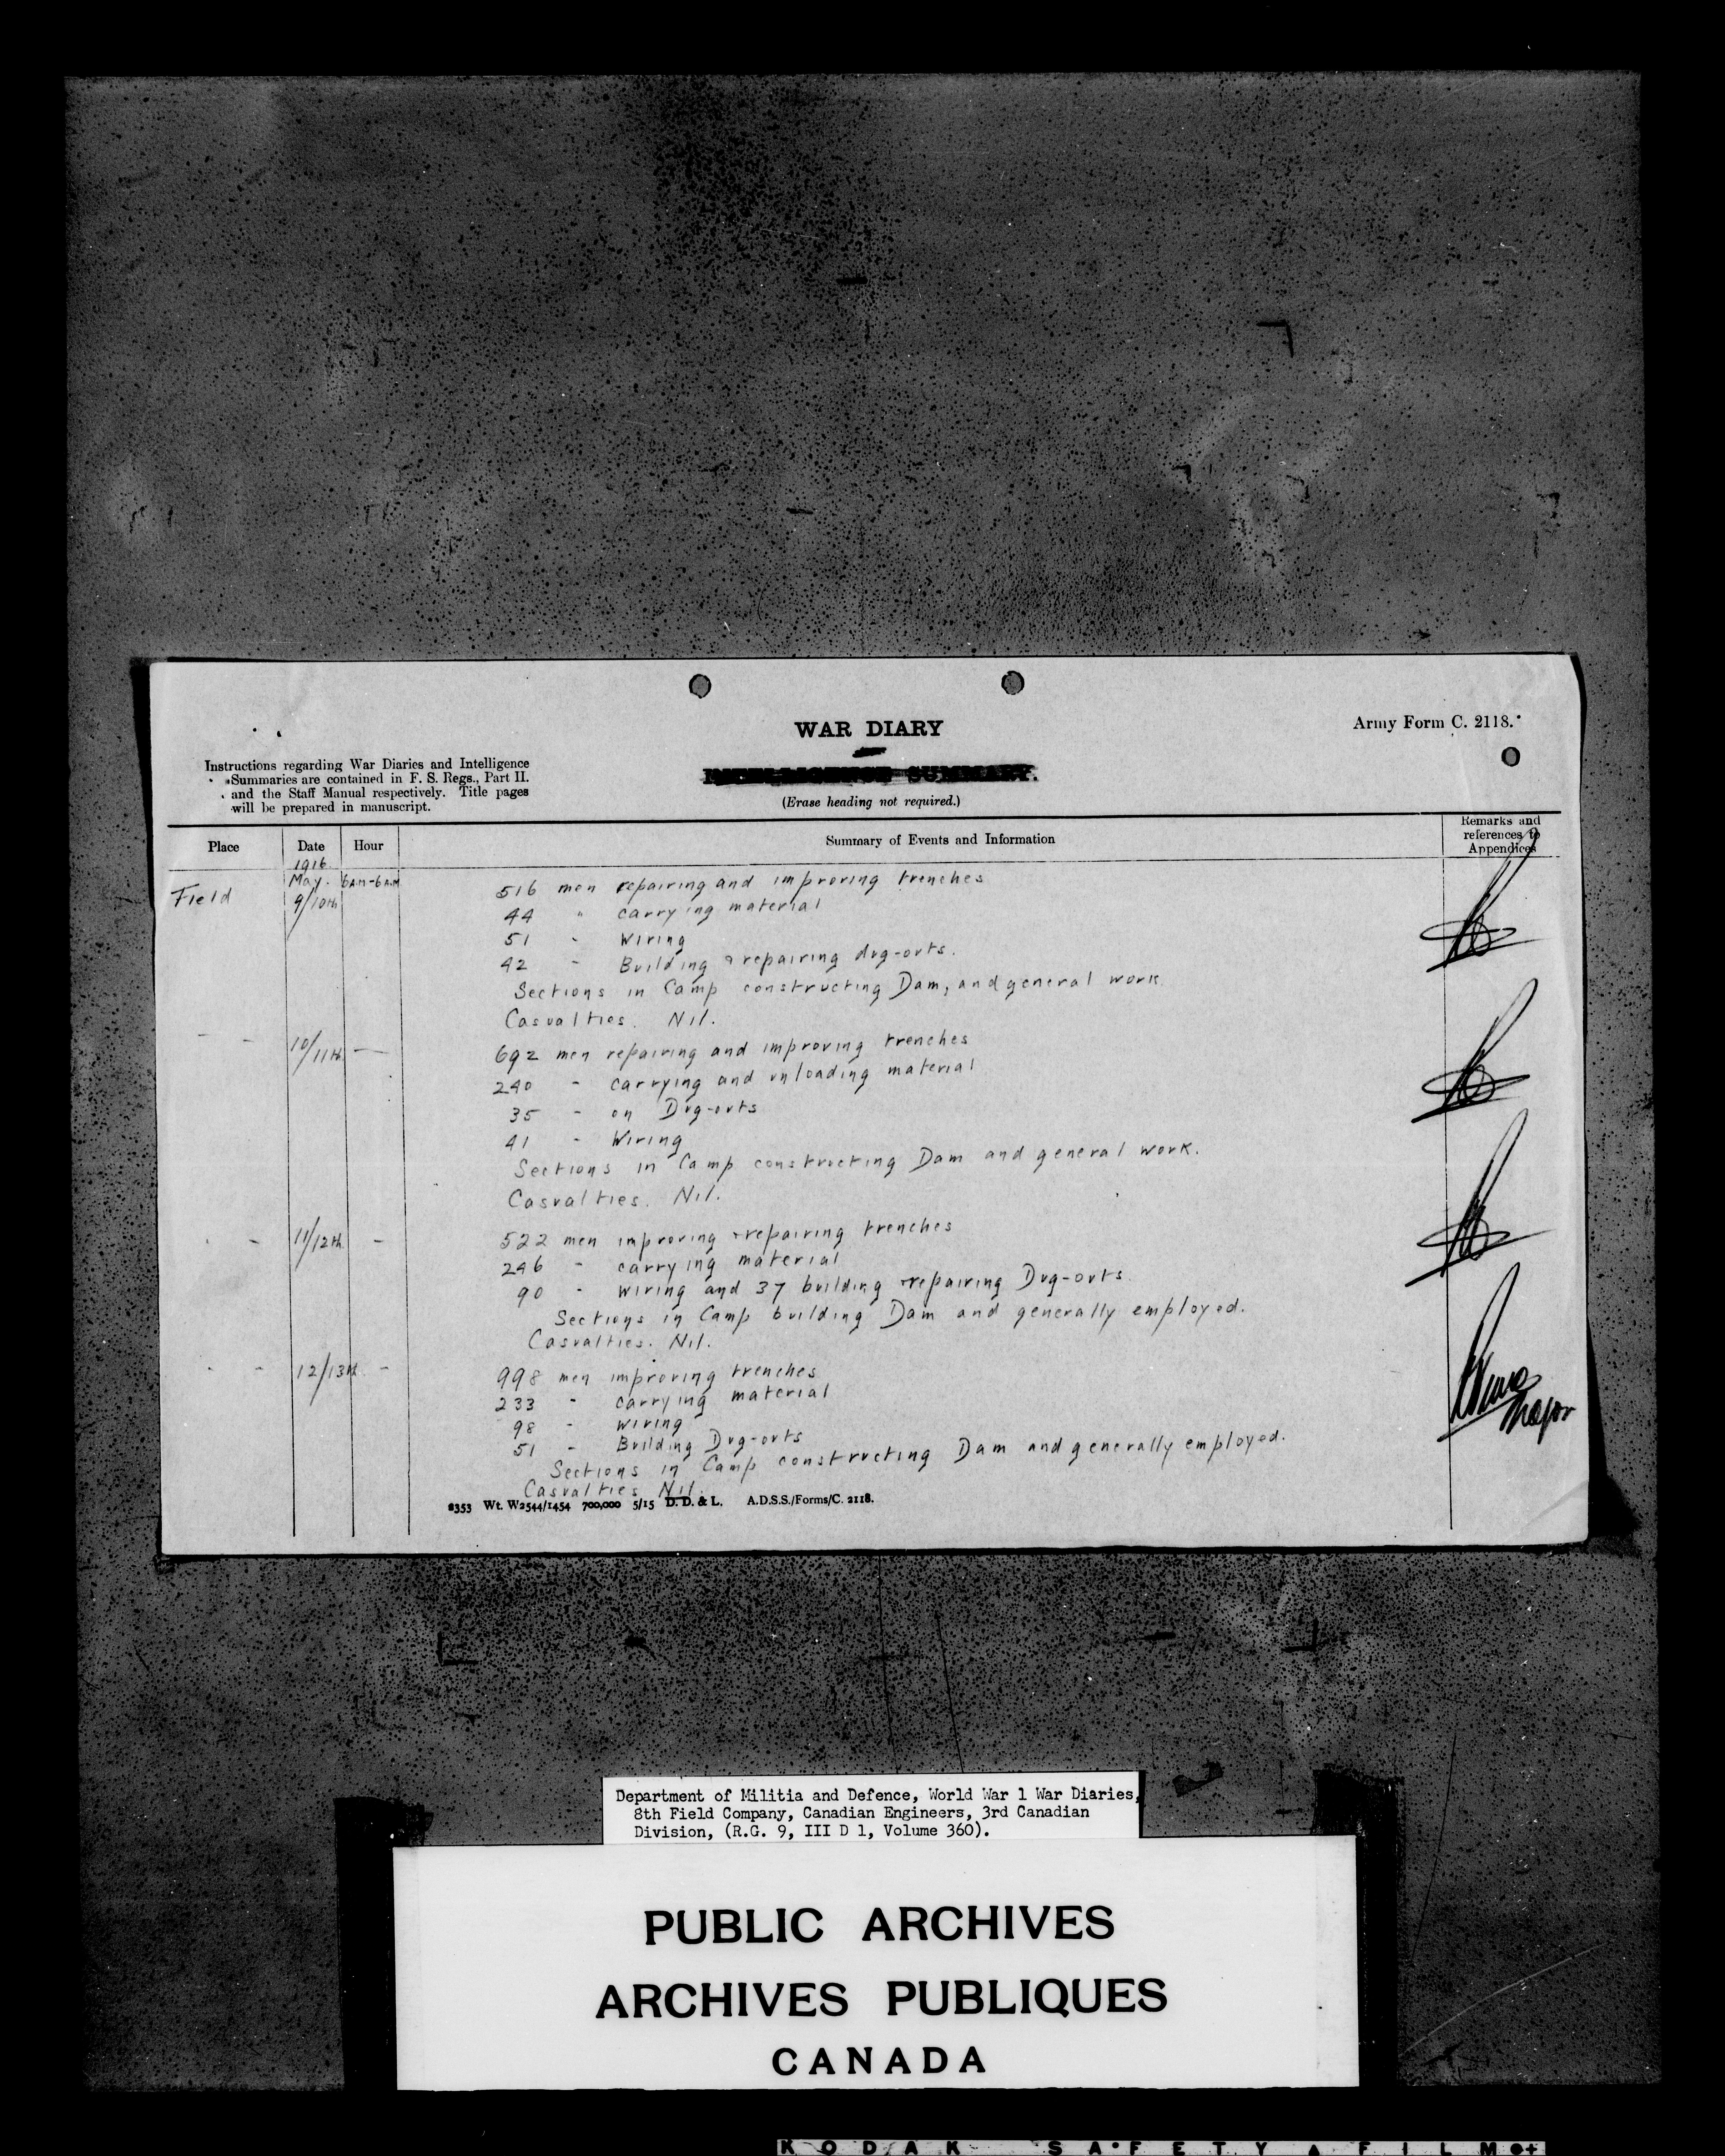 WAR DIARY
Army Form C. 2118.
Instructions regarding War Diaries and Intelligence
Summaries are contained in F. S. Regs., Part II.
and the Staff Manual respectively. Title pages
will be prepared in manuscript.
INTELLIGENCE SUMMARY.
(Erase heading not required.)
Place Date Hour Summary of Events and Information Remarks and references to Appendices
1916
Field May. 9/10th 6 A.M - 6 A.M 516 men repairing and improving trenches
44 " carrying material
51 - Wiring
42 - Building & repairing dug-outs.
Sections in Camp constructing Dam, and general work.
Casualties. Nil.
- - 10/11th - 692 men repairing and improving trenches
240 - carrying and unloading material
35 - on Dug-outs
41 - Wiring
Sections in Camp constructing Dam and general work.
Casualties. Nil.
- - 11/12th - 522 men improving & repairing trenches
246 - carrying material
90 - wiring and 37 building & repairing Dug-outs.
Sections in Camp building Dam and generally employed.
Casualties. Nil.
- - 12/13th - 998 men improving trenches
233 - carrying material
98 - wiring
51 - Building Dug-outs
Sections in Camp constructing Dam and generally employed.
Casualties Nil.
Major
2353 Wt. W2544/1454 700,000 5/15 D. D. & L. A.D.S.S./Forms/C. 2118.
Department of Militia and Defence, World War 1 War Diaries,
8th Field Company, Canadian Engineers, 3rd Canadian
Division, (R.G. 9, III D 1, Volume 360).
PUBLIC ARCHIVES
ARCHIVES PUBLIQUES
CANADA
KODAK SAFETY FILM